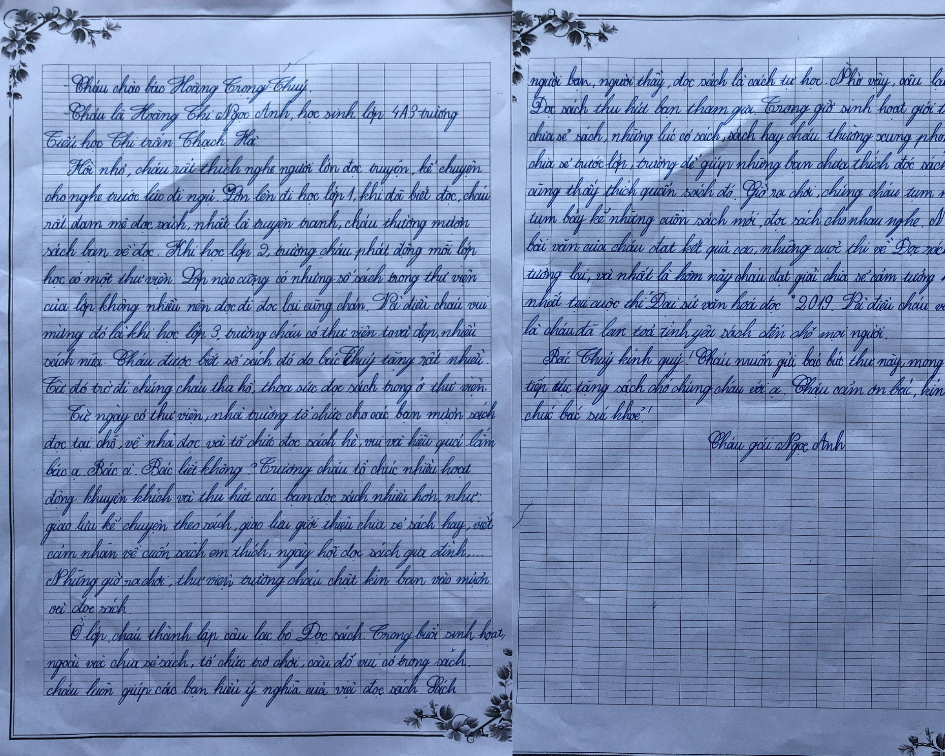 Cháu chào bác Hoàng Trọng Thuỷ.
Cháu là Hoàng Thị Ngọc Anh, học sinh lớp 4A3 trường
Tiểu học Thị trấn Thạch Hà.
Hồi nhỏ, cháu rất thích nghe người lớn đọc truyện, kể chuyện
cho nghe trước lúc đi ngủ. Lớn lên đi học lớp 1, khi đã biết đọc, cháu
rất đam mê đọc sách, nhất là truyện tranh, cháu thường mượn
sách bạn về đọc. Khi học lớp 2, trường cháu phát động mỗi lớp
học có một thư viện. Lớp nào cũng có nhưng số sách trong thư viện
của lớp không nhiều nên đọc đi đọc lại cũng chán. Và điều cháu vui
mừng đó là khi học lớp 3, trường cháu có thư viện to và đẹp, nhiều
sách nữa. Cháu được biết số sách đó do bác Thuỷ tặng rất nhiều.
Từ đó trở đi chúng cháu tha hồ, thoả sức đọc sách trong ở thư viện.
Từ ngày có thư viện, nhà trường tổ chức cho các bạn mượn sách
đọc tại chỗ, về nhà đọc và tổ chức đọc sách hè, vui và hiệu quả lắm
bác ạ. Bác ạ! Bác biết không? Trường cháu tổ chức nhiều hoạt
động khuyến khích và thu hút các bạn đọc sách nhiều hơn, như:
giao lưu kể chuyện theo sách, giao lưu giới thiệu chia sẻ sách hay, viết
cảm nhận về cuốn sách em thích, ngày hội đọc sách gia đình,...
Những giờ ra chơi, thư viện trường cháu chật kín bạn vào mượn
và đọc sách.
Ở lớp, cháu thành lập câu lạc bộ Đọc sách. Trong buổi sinh hoạt,
ngoài việc chia sẻ sách, tổ chức trò chơi, câu đố vui có trong sách,
cháu luôn giúp các bạn hiểu ý nghĩa của việc đọc sách. Sách
người bạn, người thầy, đọc sách là cách tự học. Nhờ vậy, câu lạ
Đọc sách thu hút bạn tham gia. Trong giờ sinh hoạt giới
chia sẻ sách, những lúc có sách, sách hay cháu thường xung pho
chia sẻ trước lớp, trường để giúp những bạn chưa thích đọc sách
cũng thấy thích quyển sách đó. Giờ ra chơi, chúng cháu tụm
tụm bảy kể những cuốn sách mới, đọc sách cho nhau nghe.
bài văn của cháu đạt kết quả cao, những cuộc thi về Đọc sách
tương lai, và nhất là hôm nay cháu đạt giải chia sẻ cảm tưởng
nhất tại cuộc thi "Đại sứ văn hoá đọc" 2019. Và điều cháu
là cháu đã lan toả tình yêu sách đến chỗ mọi người.
Bác Thuỷ kính quý! Cháu muốn gửi bác bức thư này, mong
tiếp tục tặng sách cho chúng cháu với ạ. Cháu cảm ơn bác, kín
chúc bác sức khoẻ!
Cháu gái Ngọc Anh